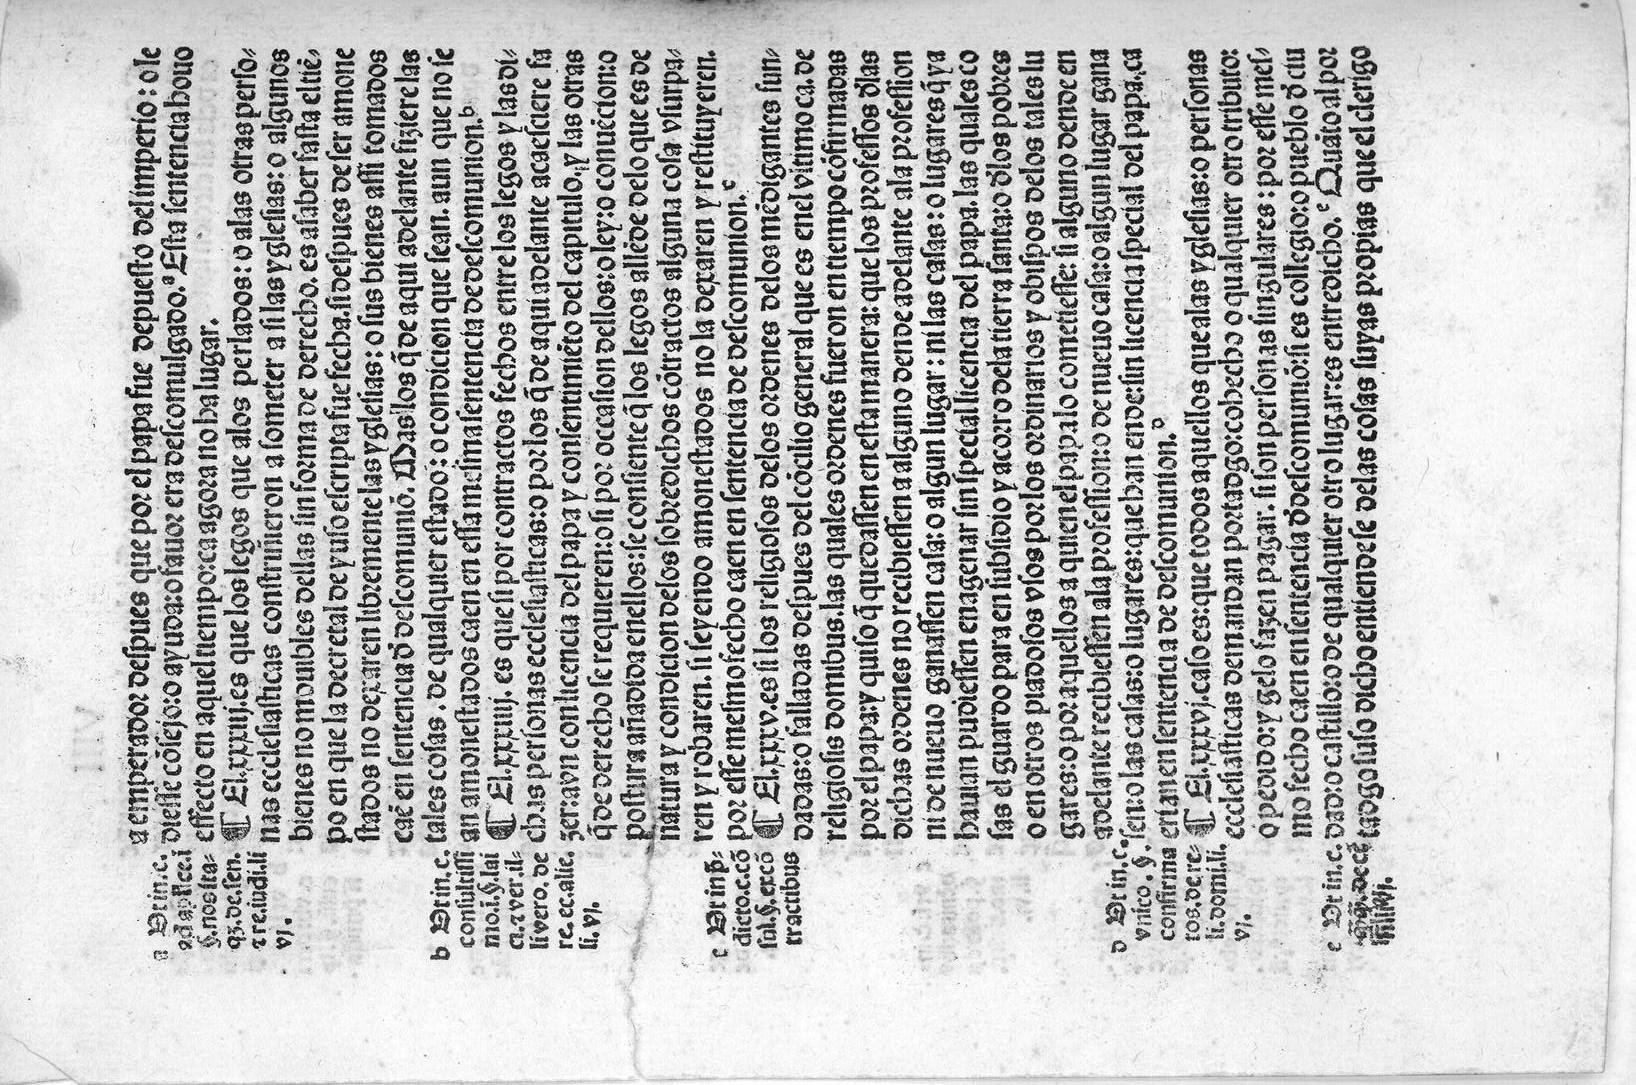 a emperador despues que por el papa fue depuesto del imperio: o le
diesse cõsejo: o ayuda o fauor era descomulgado.ᵃ Esta sentencia houo
effecto en aquel tiempo: ca agora no ha lugar.
¶ El .xxxiiij. es que los legos que a los perlados: o a las otras perso-
nas ecclesiasticas constriñeron a someter a si las yglesias: o algunos
bienes no mouibles dellas sin forma de derecho. es a saber fasta el tiẽ-
po en que la decretal de yuso escripta fue fecha. si despues de ser amone
stados no dexaren libremente las yglesias: o sus bienes assi tomados
caẽ en sentencia d̃ descomuniõ. Mas los q̃ de aqui adelante fizieren las
tales cosas. de qualquier estado: o condicion que sean. aun que no se
an amonestados caen en essa mesma sentencia de descomunion.ᵇ
¶ El .xxxiiij. es que si por contractos fechos entre los legos y las di-
chas personas ecclesiasticas: o por los q̃ de aqui adelante acaesciere fa
zer: avn con licencia del papa y consentimiẽto del capitulo, y las otras
q̃ de derecho se requieren: o si por occasion dellos: o ley: o conuẽcion: o
postura añadida en ellos: se consiente q̃ los legos allẽde de lo que es de
natura y condicion de los sobredichos cõtractos alguna cosa vsurpa-
ren y robaren. si seyendo amonestados no la dexaren y restituyeren.
por esse mesmo fecho caen en sentencia de descomunion.ᶜ
¶ El .xxxv. es si los religiosos de los ordenes de los mẽdigantes fun-
dadas: o falladas despues del cõcilio general que es en el vltimo ca. de
religiosis domibus. las quales ordenes fueron en tiempo cõfirmadas
por el papa: y quiso q̃ quedassen en esta manera: que los professos d̃las
dichas ordenes no recibiessen a alguno dende adelante a la profession
ni de nueuo ganassen casa: o algun lugar: ni las casas: o lugares q̃ ya
hauian pudiessen enagenar sin special licencia del papa. las quales co
sas el guardo para en subsidio y acorro de la tierra santa: o d̃los pobres
o en otros piadosos vsos por los ordinarios y obispos de los tales lu
gares: o por aquellos a quien el papa lo cometiesse: si alguno dende en
adelante recibiessen a la profession: o de nueuo casa: o algun lugar gana
sen: o las casas: o lugares: que han enagenarẽ sin licencia special del papa. ca
erian en sentencia de descomunion.ᵈ
¶ El .xxxvj. caso es: que todos aquellos que a las yglesias: o personas
ecclesiasticas demandan portadgo: cobecho o qualquier otro tributo:
o pedido: y gelo fazen pagar. si son personas singulares: por esse mes-
mo fecho caen en sentencia d̃ descomuniõ: si es collegio: o pueblo d̃ ciu
dad: o castillo: o de qualquer otro lugar: es entredicho.ᵉ Quãto al por
tadgo suso dicho entiendese de las cosas suyas propias que el clerigo
a Vt in .c.
ad aplice. i
§. nos ita-
q3. de. sen.
⁊ re iudi. li
vj.
b Vt in .c.
consuluissi
mo. i. §. lai
ci. ⁊ ver. il-
li vero. de
re. ec. alie.
li. vj.
c Vt in p̃-
dicto. c. cõ
sul. §. ex cõ
tractibus
d Vt in .c.
vnico. §.
confirma
tos. de re-
li. domi. li.
vj.
e Vt in .c.